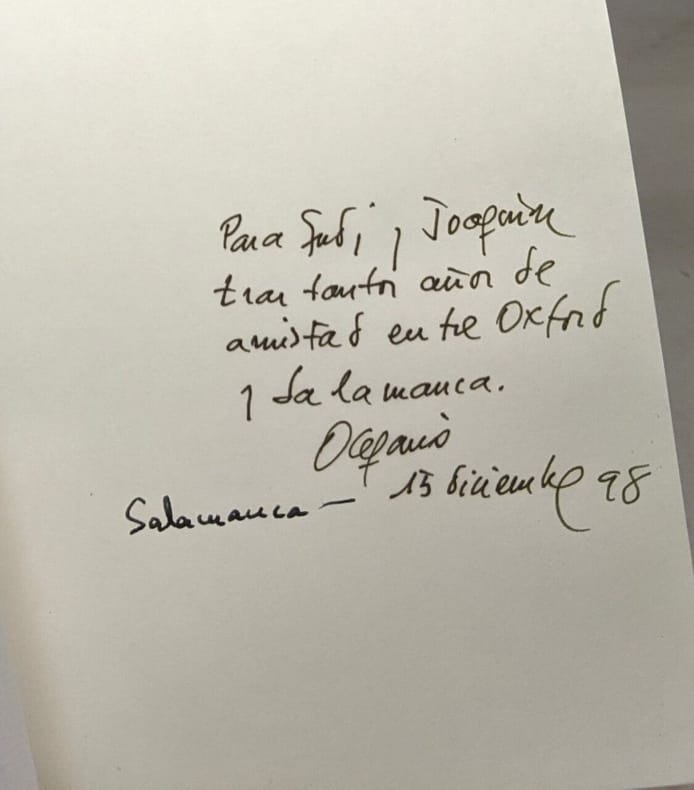 Para Judi y Joaquín
tras tantos años de
amistad entre Oxford
y Salamanca.
Salamanca — 15 diciembre 98